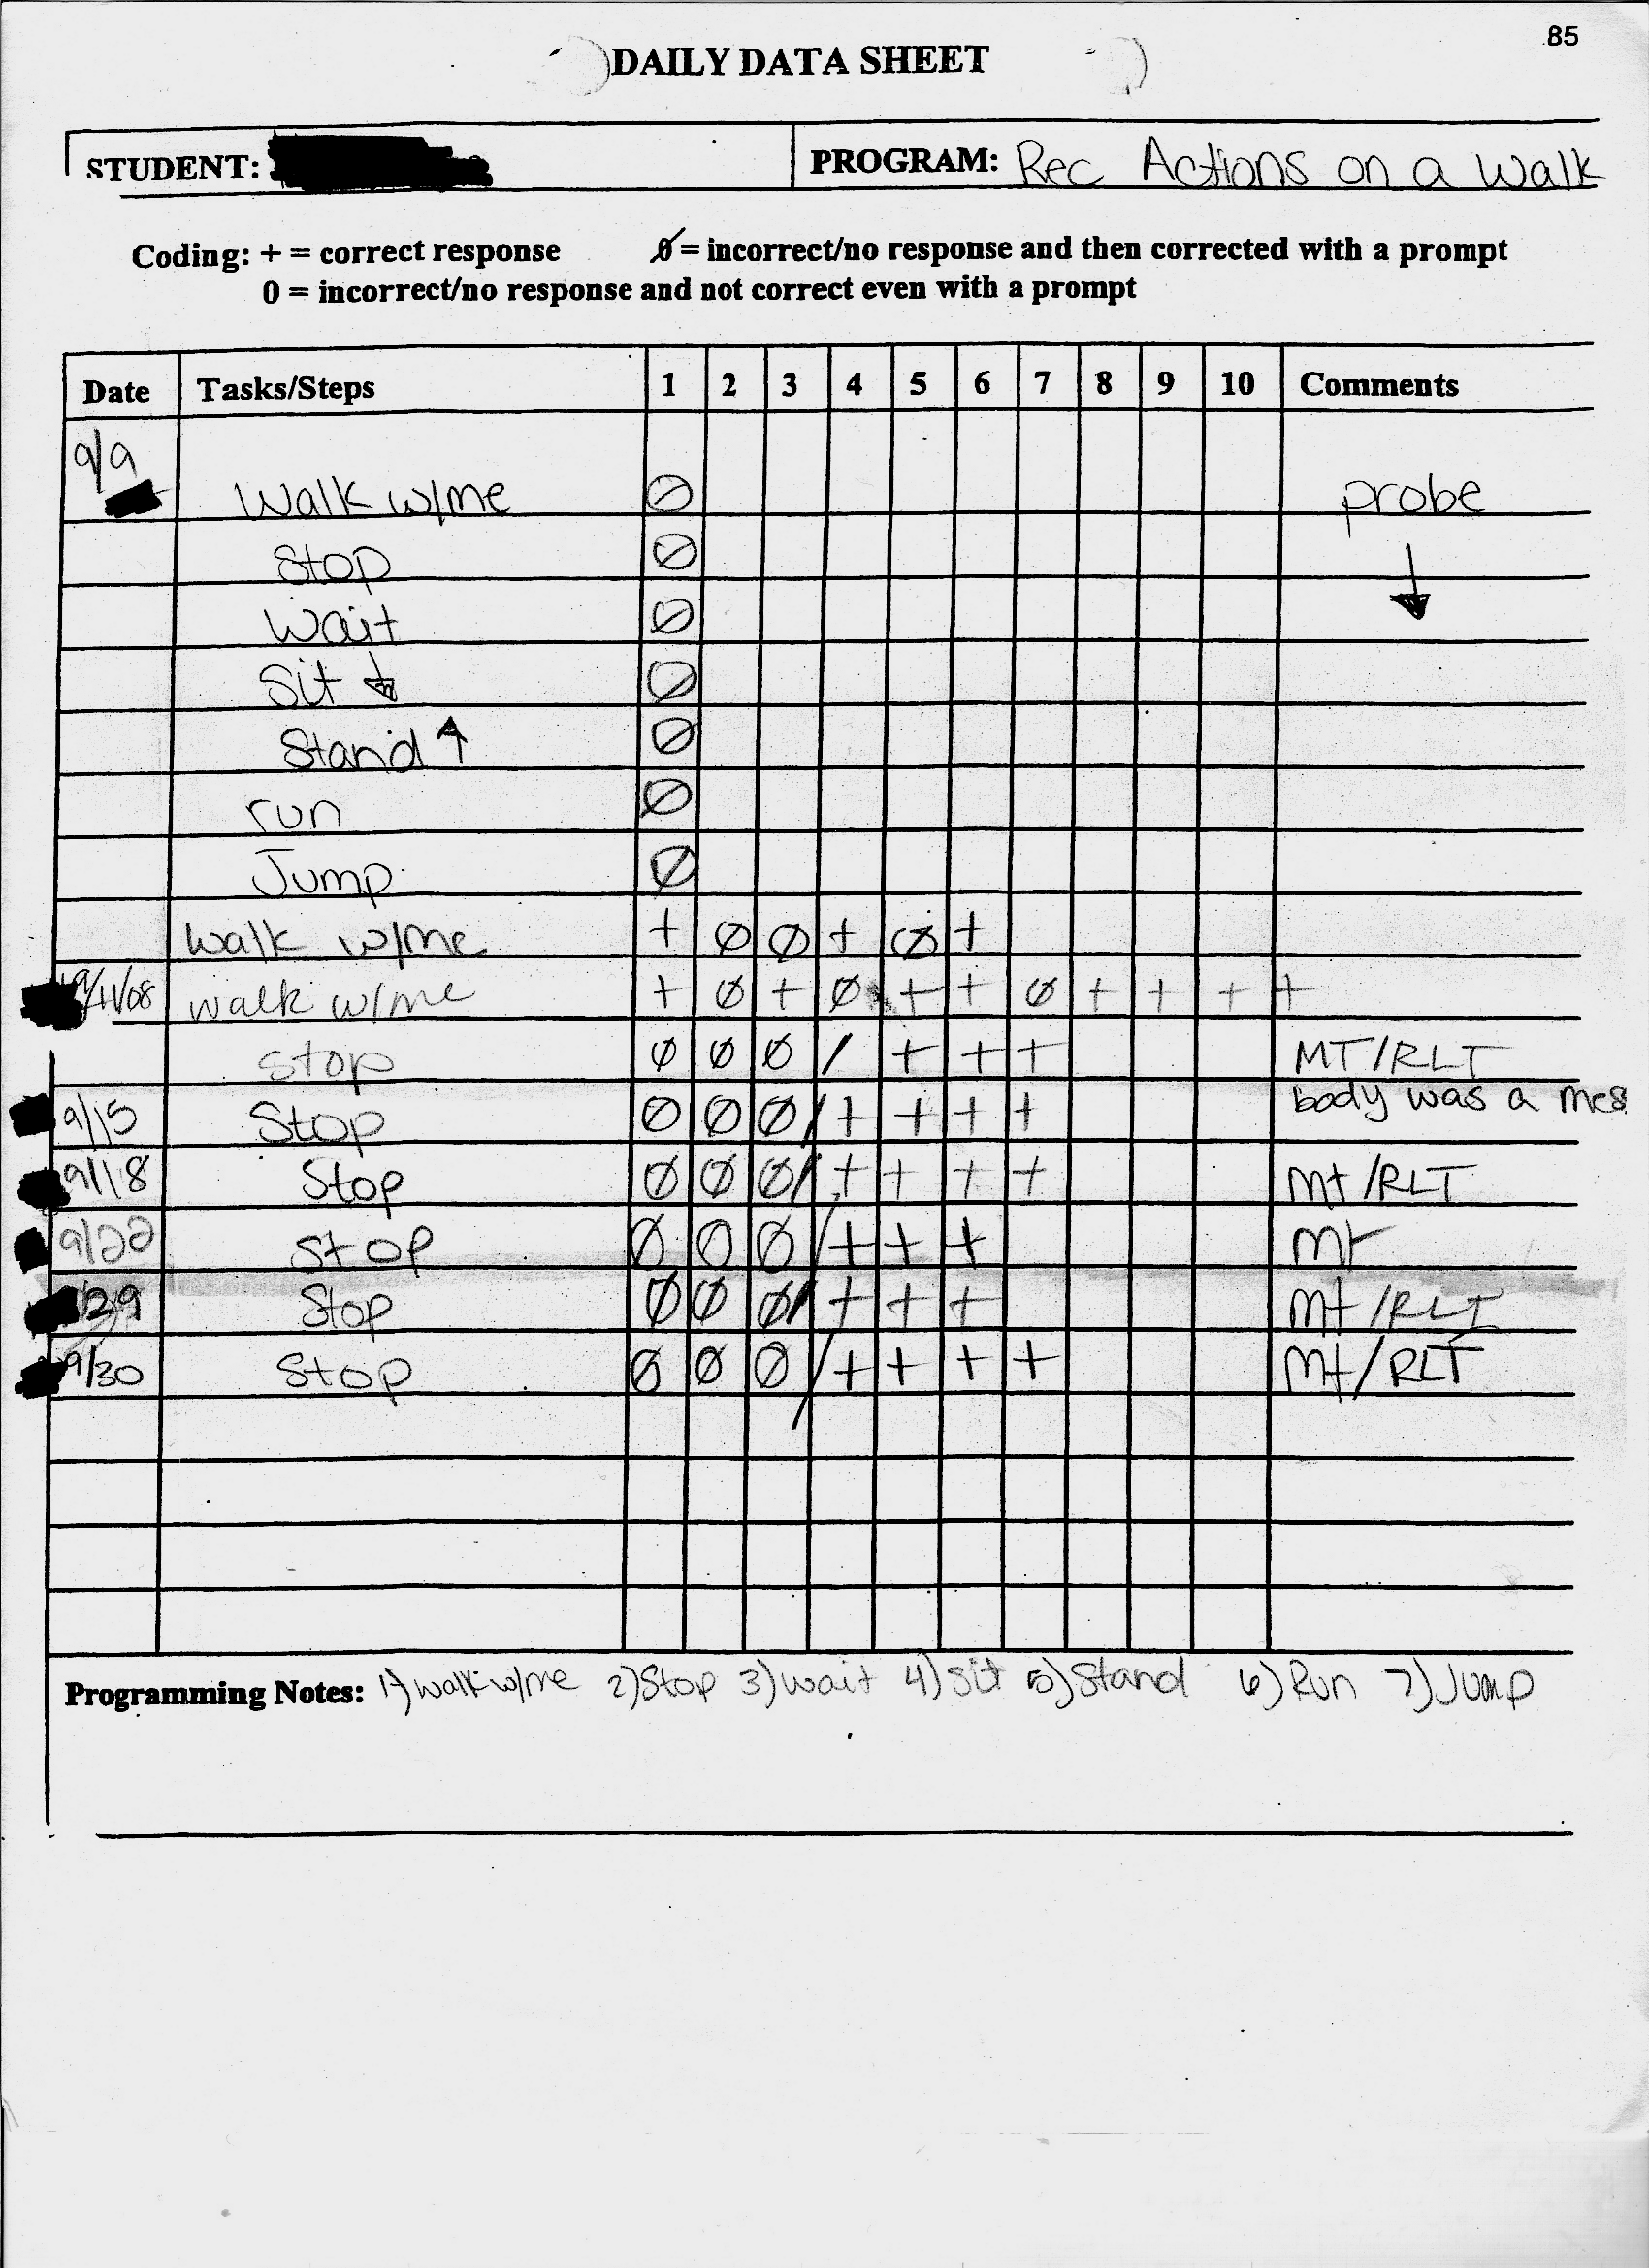 85
DAILY DATA SHEET
STUDENT: PROGRAM: Rec Actions on a Walk
Coding: + = correct response Ø = incorrect/no response and then corrected with a prompt
0 = incorrect/no response and not correct even with a prompt
Date Tasks/Steps 1 2 3 4 5 6 7 8 9 10 Comments
9/9 Walk w/me Ø probe
Stop Ø ↓
Wait Ø
Sit ↓ Ø
Stand ↑ Ø
run Ø
Jump Ø
walk w/me + Ø Ø + Ø +
9/11/08 walk w/me + Ø + Ø + + Ø + + + +
stop Ø Ø Ø / + + + MT/RLT
9/15 Stop Ø Ø Ø / + + + + body was a mes
9/18 Stop Ø Ø Ø / + + + + Mt/RLT
9/22 Stop Ø Ø Ø / + + + Mt
/29 Stop Ø Ø Ø / + + + Mt/RLT
9/30 Stop Ø Ø Ø / + + + + Mt/RLT
Programming Notes: 1) walk w/me 2) Stop 3) wait 4) sit 5) Stand 6) Run 7) Jump